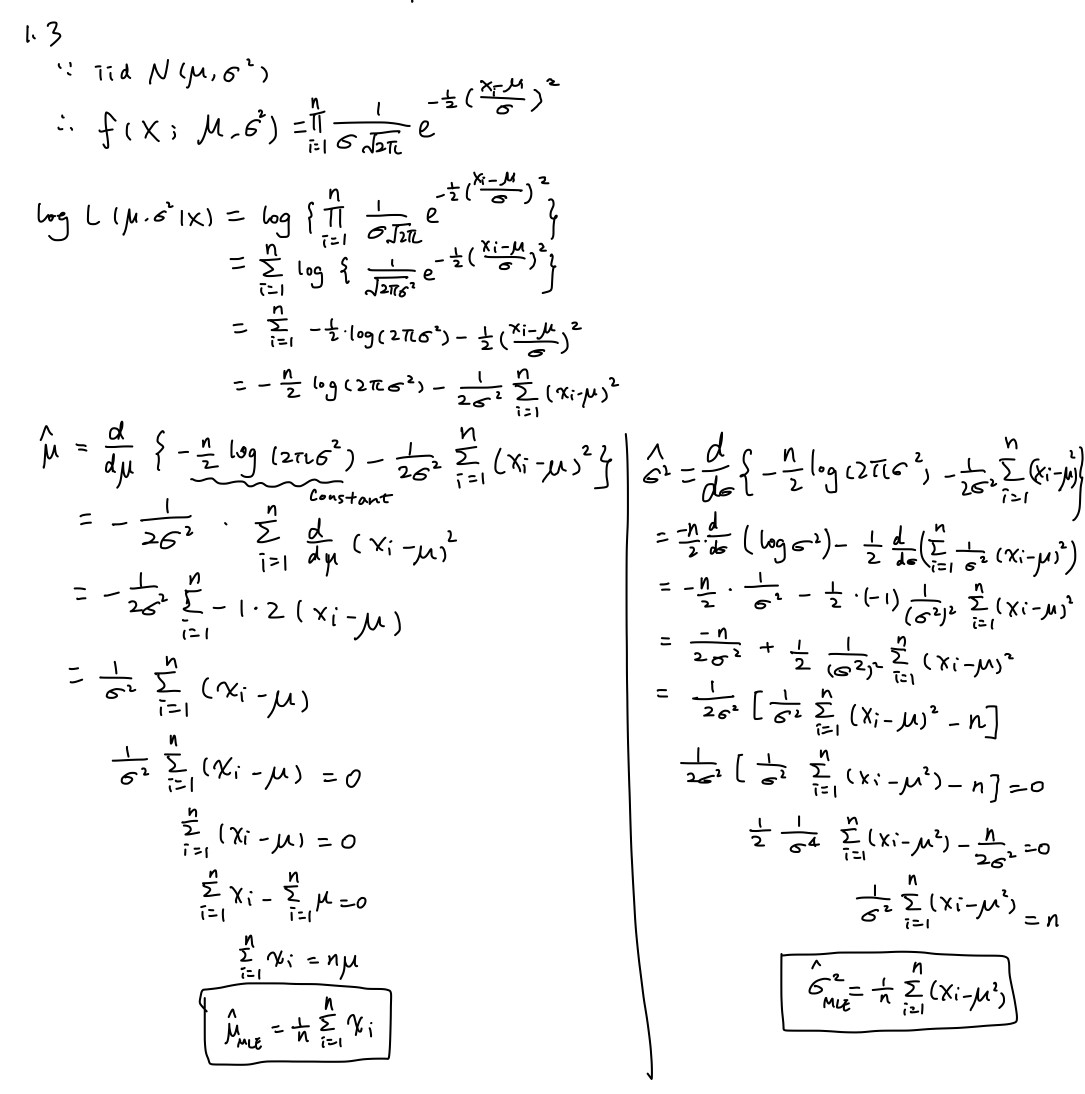 1.3
∵ iid N(μ, σ²)
∴ f(x; μ, σ²) = ∏_{i=1}^{n} 1/(σ√(2π)) e^{-1/2 ((xᵢ-μ)/σ)²}
log L(μ·σ²|x) = log { ∏_{i=1}^{n} 1/(σ√(2π)) e^{-1/2 ((xᵢ-μ)/σ)²} }
= Σ_{i=1}^{n} log { 1/√(2πσ²) e^{-1/2 ((xᵢ-μ)/σ)²} }
= Σ_{i=1}^{n} -1/2 · log(2πσ²) - 1/2 ((xᵢ-μ)/σ)²
= -n/2 log(2πσ²) - 1/(2σ²) Σ_{i=1}^{n} (xᵢ-μ)²
μ̂ = d/dμ { -n/2 log(2πσ²) - 1/(2σ²) Σ_{i=1}^{n} (xᵢ-μ)² }
constant
= -1/(2σ²) · Σ_{i=1}^{n} d/dμ (xᵢ-μ)²
= -1/(2σ²) Σ_{i=1}^{n} -1·2(xᵢ-μ)
= 1/σ² Σ_{i=1}^{n} (xᵢ-μ)
1/σ² Σ_{i=1}^{n} (xᵢ-μ) = 0
Σ_{i=1}^{n} (xᵢ-μ) = 0
Σ_{i=1}^{n} xᵢ - Σ_{i=1}^{n} μ = 0
Σ_{i=1}^{n} xᵢ = nμ
μ̂_MLE = 1/n Σ_{i=1}^{n} xᵢ
σ̂² = d/dσ { -n/2 log(2πσ²) - 1/(2σ²) Σ_{i=1}^{n} (xᵢ-μ)² }
= -n/2 · d/dσ (log σ²) - 1/2 d/dσ (Σ_{i=1}^{n} 1/σ² (xᵢ-μ)²)
= -n/2 · 1/σ² - 1/2 · (-1) 1/(σ²)² Σ_{i=1}^{n} (xᵢ-μ)²
= -n/(2σ²) + 1/2 1/(σ²)² Σ_{i=1}^{n} (xᵢ-μ)²
= 1/(2σ²) [ 1/σ² Σ_{i=1}^{n} (xᵢ-μ)² - n ]
1/(2σ²) [ 1/σ² Σ_{i=1}^{n} (xᵢ-μ²) - n ] = 0
1/2 1/σ⁴ Σ_{i=1}^{n} (xᵢ-μ²) - n/(2σ²) = 0
1/σ² Σ_{i=1}^{n} (xᵢ-μ²) = n
σ̂²_MLE = 1/n Σ_{i=1}^{n} (xᵢ-μ²)